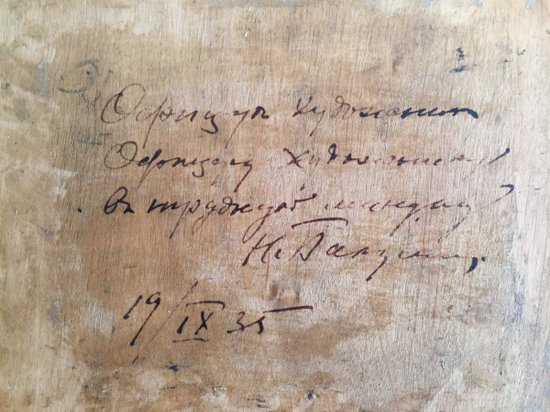 Офицеръ Художник
Офицеру Художнику
въ трудную минуту
Н.
19/IX 35